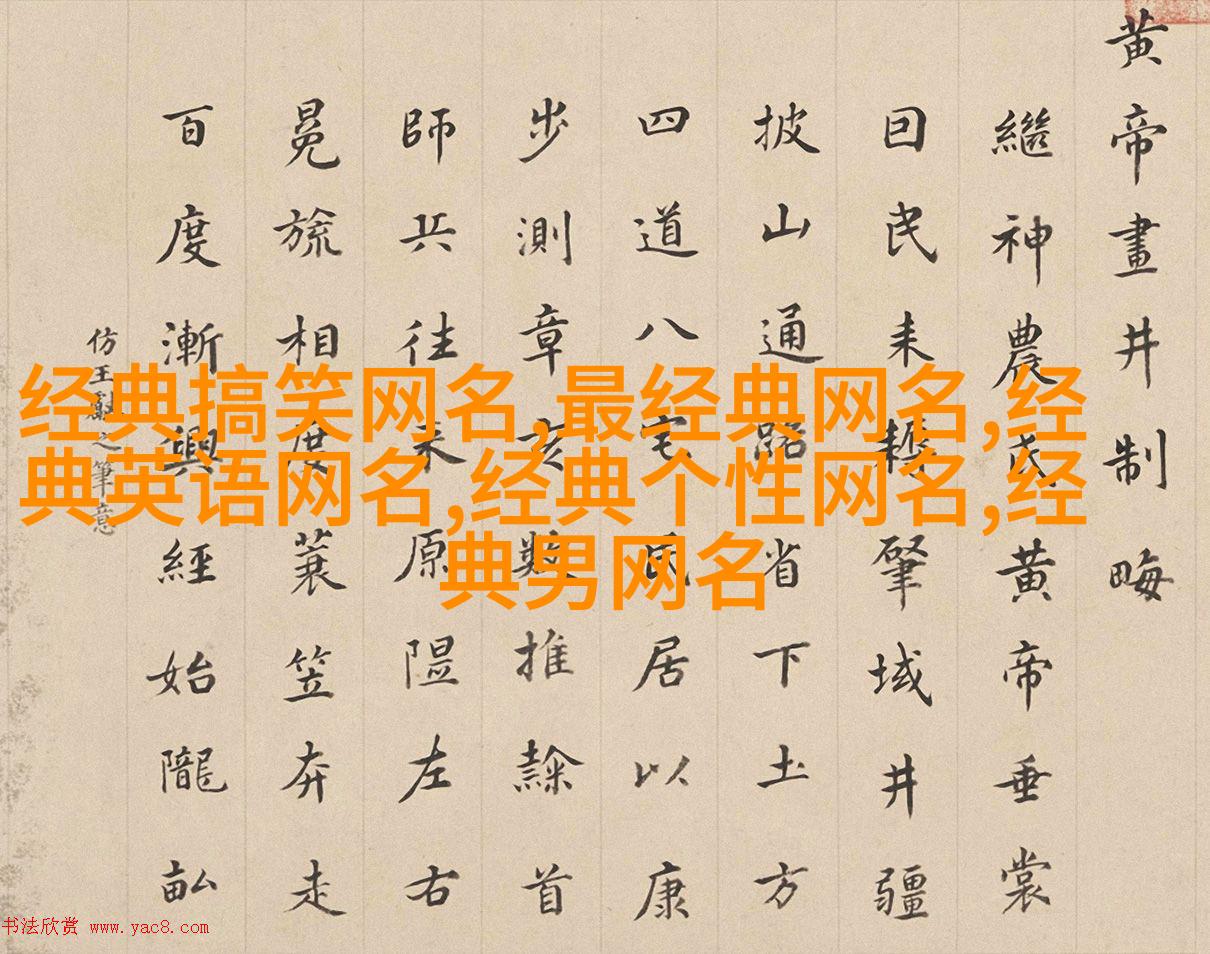 黄帝畫井制畮
繼神農氏黄帝垂裳
囙民耒耨肇域井疆
披山通路省下土方
四道八宅民居以康
步測章亥數推隸首
師兵往来原隰左右
冕旒相度蓑笠奔走
百度漸興經始隴畝
仿王獻之筆意
经典搞笑网名,最经典网名,经
典英语网名,经典个性网名,经
典男网名
书法欣赏 www.yac8.com